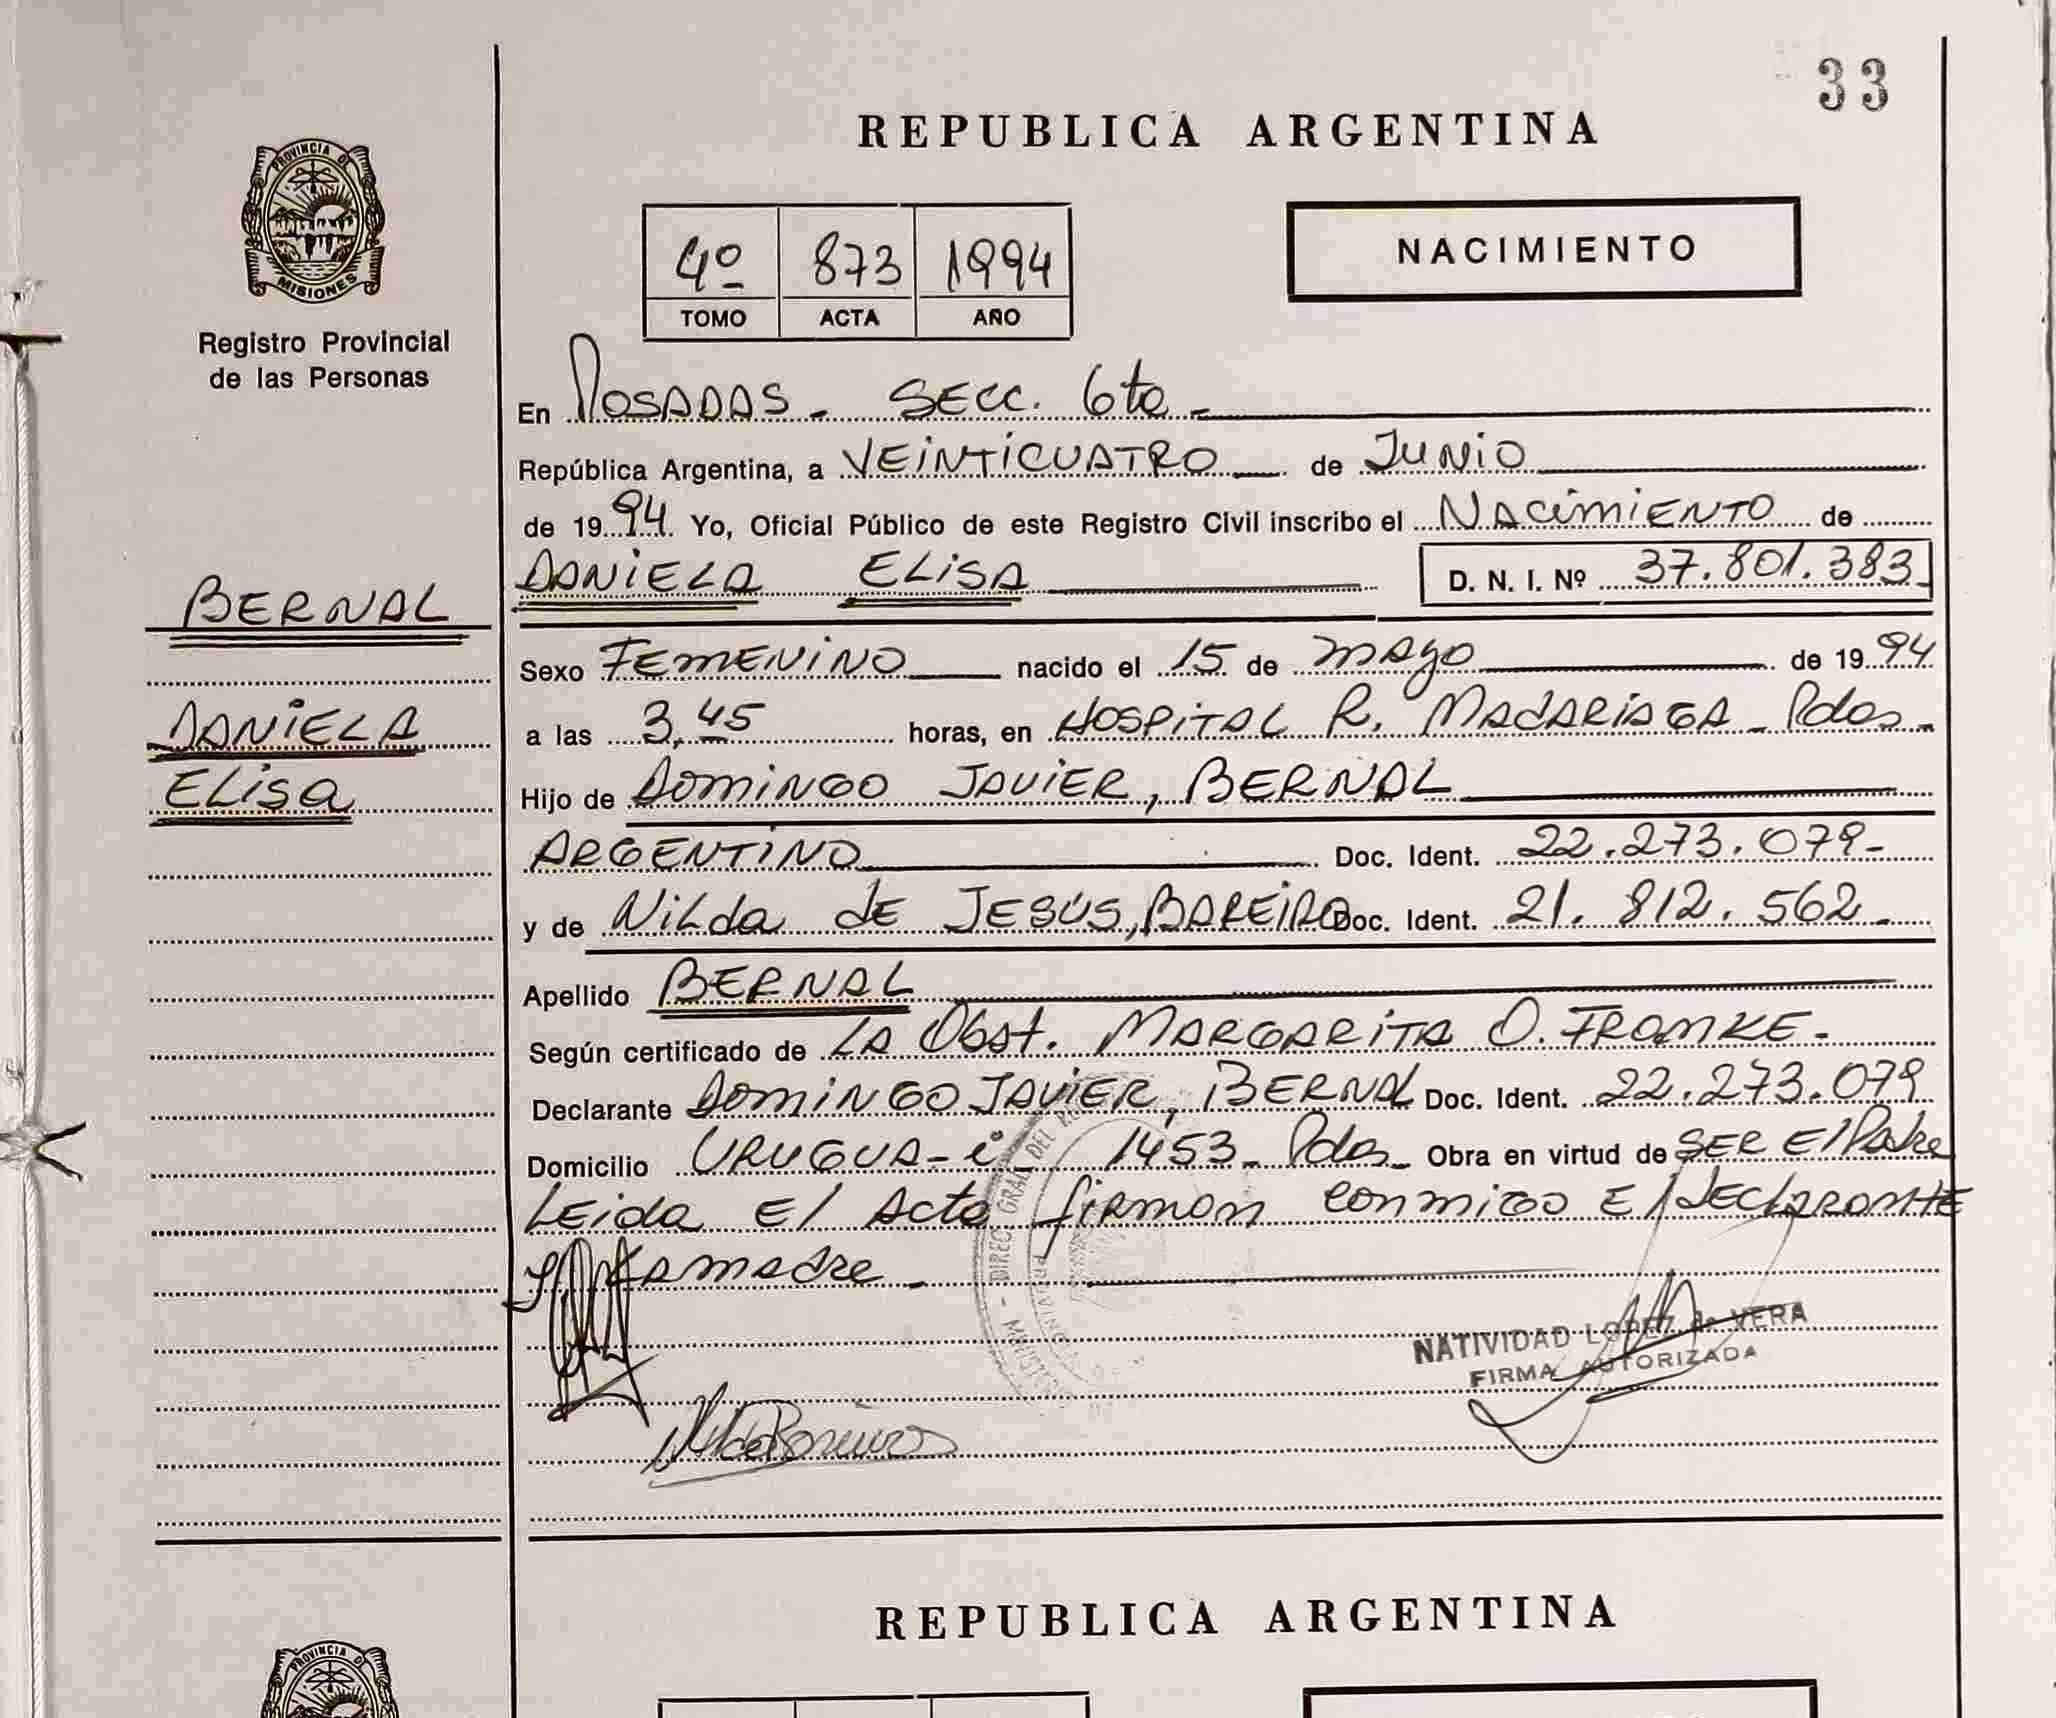 33
REPUBLICA ARGENTINA
PROVINCIA DE
MISIONES
Registro Provincial
de las Personas
4º 873 1994
TOMO ACTA AÑO
NACIMIENTO
En POSADAS - SECC. 6ta -
República Argentina, a VEINTICUATRO de JUNIO
de 1994 Yo, Oficial Público de este Registro Civil inscribo el NACIMIENTO de
DANIELA ELISA D. N. I. Nº 37.801.383
BERNAL
DANIELA
ELISA
Sexo FEMENINO nacido el 15 de mayo de 1994
a las 3,45 horas, en HOSPITAL R. MADARIAGA - Pdas -
Hijo de DOMINGO JAVIER, BERNAL
ARGENTINO Doc. Ident. 22.273.079-
y de Nilda de JESÚS, BAREIRO Doc. Ident. 21.812.562 -
Apellido BERNAL
Según certificado de LA Obst. MARGARITA O. FRANKE -
Declarante DOMINGO JAVIER, BERNAL Doc. Ident. 22.273.079
Domicilio URUGUA-i 1453 - Pdas - Obra en virtud de SER El Padre
Leida El Acta firman conmigo El declarante
y la madre -
NATIVIDAD LOPEZ de VERA
FIRMA AUTORIZADA
REPUBLICA ARGENTINA
PROVINCIA D